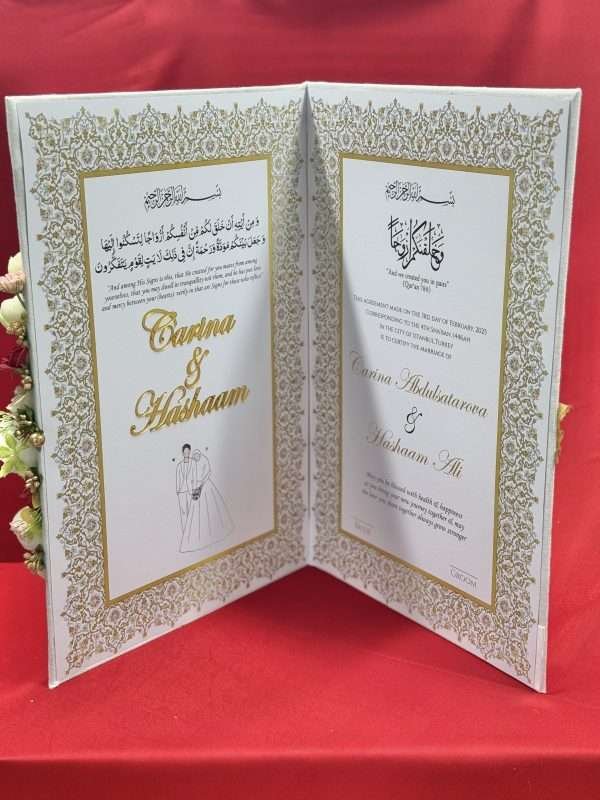 بسم الله الرحمن الرحيم
وَ مِنْ اٰيٰتِهٖ اَنْ خَلَقَ لَكُمْ مِّنْ اَنْفُسِكُمْ اَزْوَاجًا لِّتَسْكُنُوْا اِلَيْهَا
وَ جَعَلَ بَيْنَكُمْ مَّوَدَّةً وَّ رَحْمَةً اِنَّ فِيْ ذٰلِكَ لَاٰيٰتٍ لِّقَوْمٍ يَّتَفَكَّرُوْنَ
"And among His Signs is this, that He created for you mates from among
yourselves, that you may dwell in tranquility with them, and he has put love
and mercy between your (hearts): verily in that are Signs for those who reflect."
Carina
&
Hashaam
بسم الله الرحمن الرحيم
وَخَلَقْنَاكُمْ أَزْوَاجًا
"And we created you in pairs"
(Qur'an 78:8)
THIS AGREEMENT MADE ON THE 3RD DAY OF FEBRUARY, 2025
CORRESPONDING TO THE 4TH SHA'BAN 1446AH
IN THE CITY OF ISTANBUL, TURKEY
IS TO CERTIFY THE MARRIAGE OF
Carina Abdulsatarova
&
Hashaam Ali
May you be blessed with health & happiness
as you bring your new journey together & may
the love you share together always grow stronger
GROOM